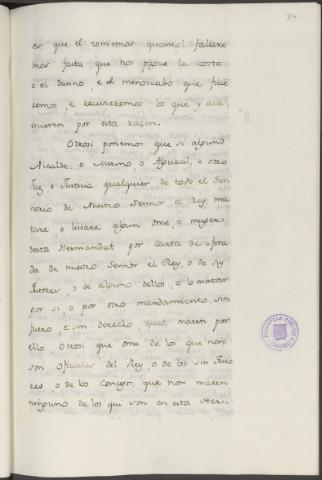 cer, que el tomemos quantol fallare
mos fasta que nos pague la costa
e el danno, e el menoscabo que ficie
remos, e recivieremos los que y aca
escieren por esta raçon.
Otrosi ponemos que si algund
Alcalde, o Merino o Alguacil, o otro
Juez, o Justicia qualquier de todo el Sen
norio de Nuestro Sennor el Rey ma
tare o lisiare algun ome, o muger
desta Hermandat por carta desafora
da de nuestro Sennor el Rey, o de sus
Tutores, o de alguno dellos, o lo matare
por si o por otro mandamiento sin
fuero e sin derecho quel maten por
ello. Otrosi que ome de los que non
son Oficiales del Rey, o de los sus Tuto
res o de los Conceios, que non maten
ninguno de los que son en esta Her-